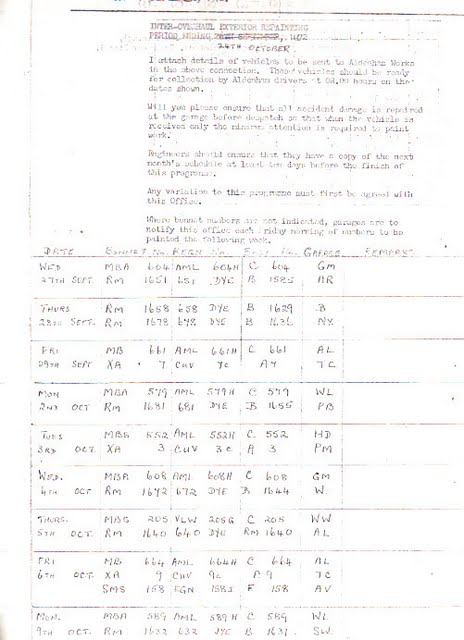 INTER-OVERHAUL EXTERIOR REPAINTING
PERIOD ENDING 1972
24TH OCTOBER
I attach details of vehicles to be sent to Aldenham Works
in the above connection. These vehicles should be ready
for collection by Aldenham drivers at 08.00 hours on the
dates shown.
Will you please ensure that all accident damage is repaired
at the garage before despatch so that when the vehicle is
received only the minimum attention is required to paint
work.
Engineers should ensure that they have a copy of the next
month's schedule at least ten days before the finish of
this programme.
Any variation to this programme must first be agreed with
this Office.
Where bonnet numbers are not indicated, garages are to
notify this office each Friday morning of numbers to be
painted the following week.
DATE BONNET No. REGN No. No. GARAGE REMARKS
WED MBA 604 AML 604H C 604 GM
27TH SEPT. RM 1651 651 DYE B 1585 AR
THURS RM 1658 658 DYE B 1629 B
28TH SEPT. RM 1678 678 DYE B 1636 NX
FRI MB 661 AML 661H C 661 AL
29TH SEPT XA 7 CUV 7C A7 TC
MON MBA 579 AML 579H C 579 WL
2ND OCT RM 1681 681 DYE B 1655 PB
TUES MBS 552 AML 552H C 552 HD
3RD OCT. XA 3 CUV 3C A 3 PM
WED. MBA 608 AML 608H C 608 GM
4TH OCT RM 1672 672 DYE B 1644 W
THURS. MBS 205 VLW 205G C 205 WW
5TH OCT. RM 1640 640 DYE RM 1640 AL
FRI MB 664 AML 664H C 664 AL
6TH OCT. XA 9 CUV 9C A 9 TC
SMS 158 EGN 158J F 158 AV
MON. MBA 589 AML 589H C 589 WL
9TH OCT. RM 1632 632 DYE B 1631 SW